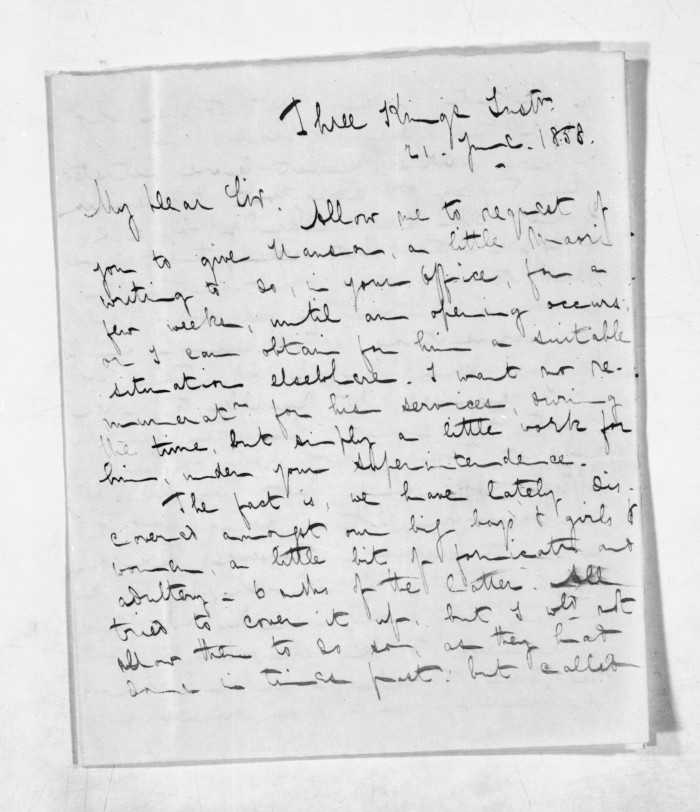 Three Kings Instn.
21. June. 1858.
My Dear Sir.
Allow me to request of
you to give a little Maori
writing to do, in your office, for a
few weeks, until an opening occurs,
or I can obtain for him a suitable
situation elsewhere. I want no re-
muneratn for his services, during
the time, but simply a little work for
him, under your superintendence.
The fact is, we have lately dis-
covered amongst our big boys & girls &
women, a little bit of fornicatn and
adultery - 6 mths of the latter. All
tried to cover it up, but I wld not
allow them to do so, as they had
done in times past: but called